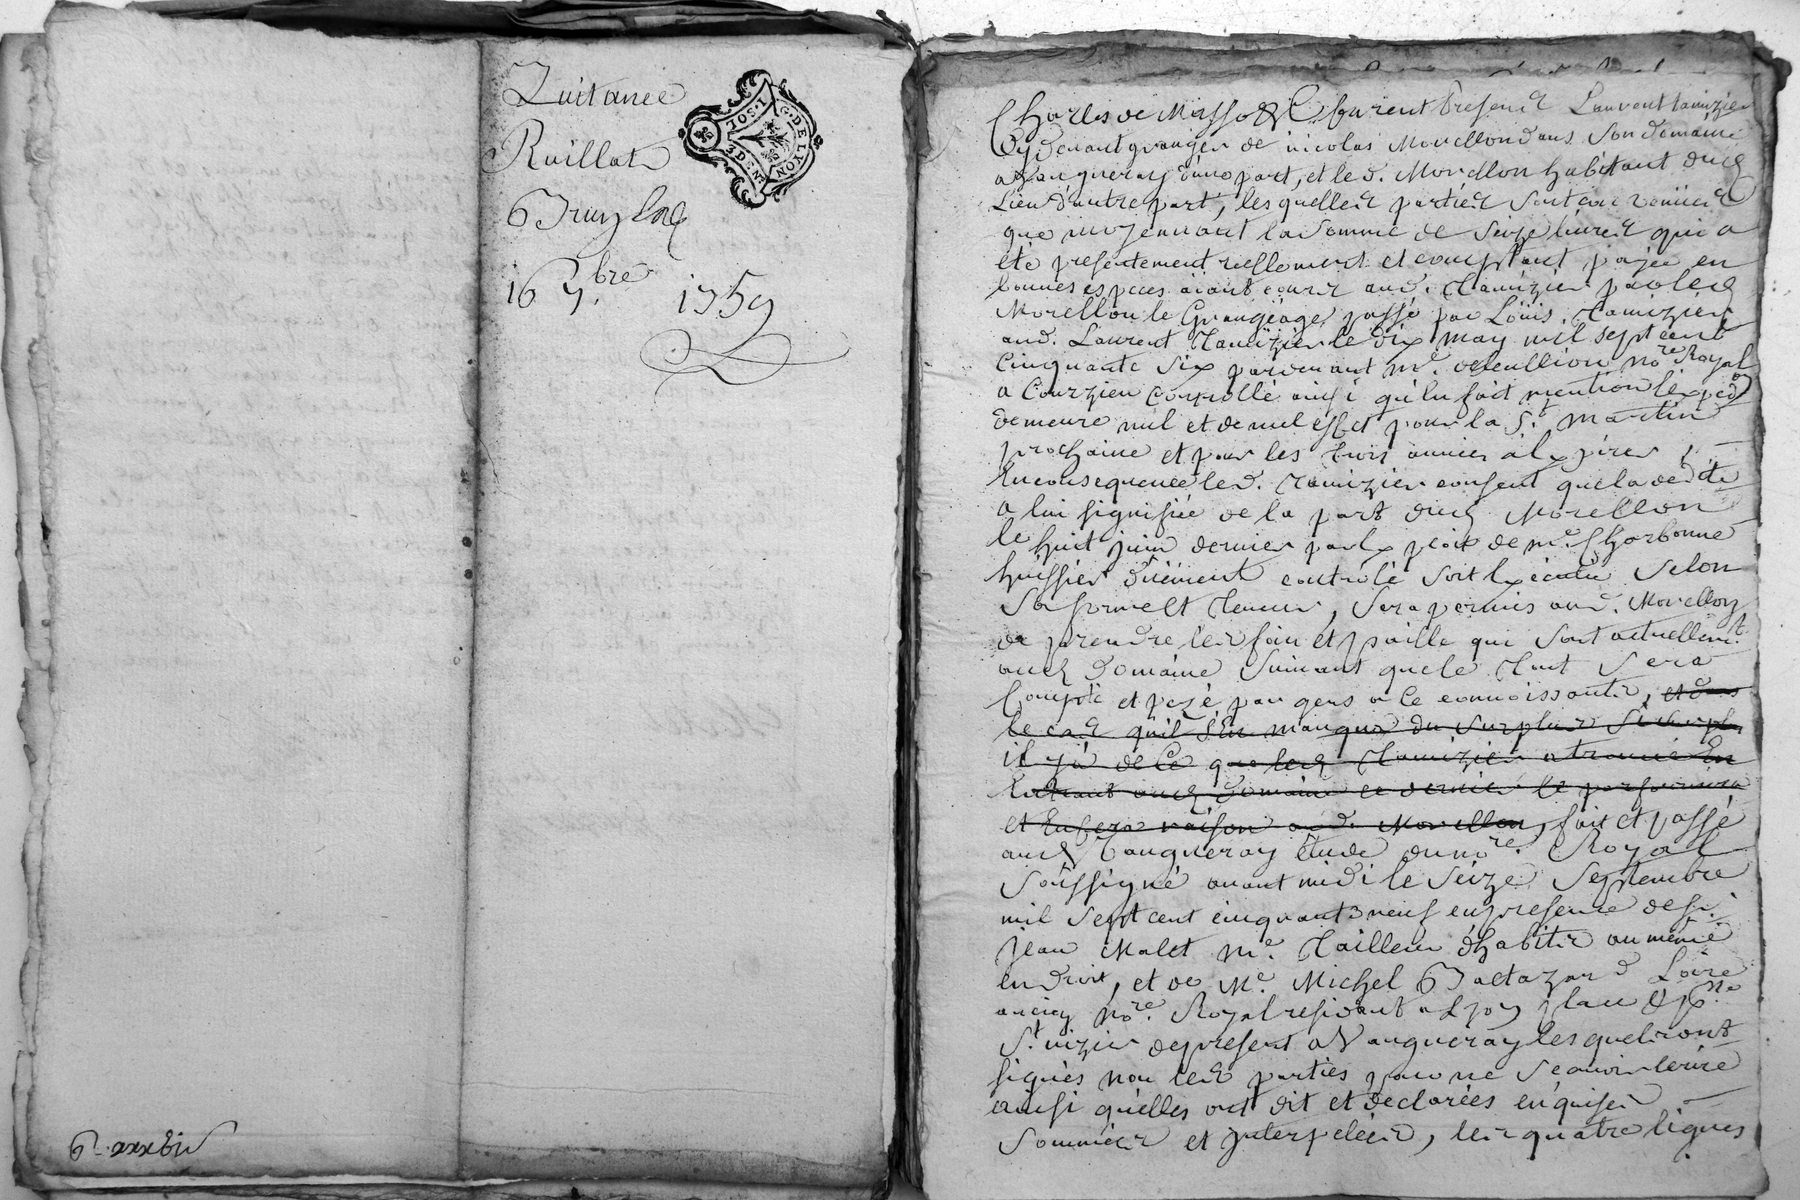 Quitance
Ruillat
Bruylas
16 7.bre 1759
G. DE LYON
1. SOL.
3 DEN.
Charles de Masso & furent presents Laurent tamizier
Cydevant granger de nicolas Morellon dans son domaine
a Vaugneray d'une part, et led. Morellon habitant dud
Lieu d'autre part, les quelles parties sont convenües
que moyennant la somme de seize livres qui a
été presentement réellement et comptant payée en
bonnes espèces aiant cours aud. Tamizier par led
Morellon le Grangéage passé par Loüis Tamizier
aud. Laurent Tamizier le dix may mil sept cent
Cinquante six pardevant me. no.re Royal
a Courzieu Controllé ainsi qu'il en fait mention l'expedon
demeure nul et de nul effet pour la St. Martin
prochaine et pour les trois années à Expirer
En consequence led. Tamizier consent que la
a lui signifiée de la part dud Morellon
le huit juin dernier par Exploit de me. Charbonne
huissier düement controlé soit Exécuté selon
sa forme et Teneur, sera permis aud. Morellon
de prendre les foin et paille qui sont actuellemt.
aud Domaine suivant que le tout sera
Compté et pezé par gens a ce connoissants, et dans
le cas qu'il s'En manqua du surplus
il y a de ce que led Tamizier a trouvé En
Entrant aud Domaine ce dernier le parfournira
et En fera raison aud. Morellon, fait et passé
aud Vaugneray Etude dud no.re Royal
Soussigné avant midi le seize Septembre
mil sept cent cinquante neuf en presence de sr.
Jean Malet me. Tailleur d'habits au même
endroit, et de Me. Michel Baltazard Loire
ancien no.re Royal residant a Lyon place &
St. nizier de present a Vaugneray les quels ont
signés non les parties pour ne scavoir Ecrire
ainsi qu'elles ont dit et declarées enquises
Sommées et Interpelées, les quatre lignes